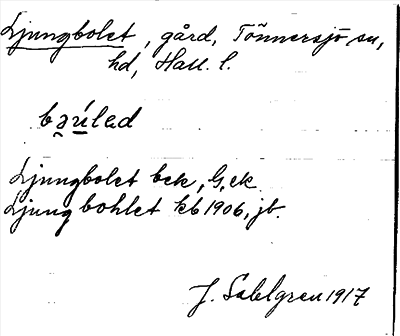 Ljungbolet, gård, Tönnersjö sn,
hd, Hall. l.
Ljungbolet bek, G, ek
Ljungbohlet kb 1906, jb.
J. Sahlgren 1917